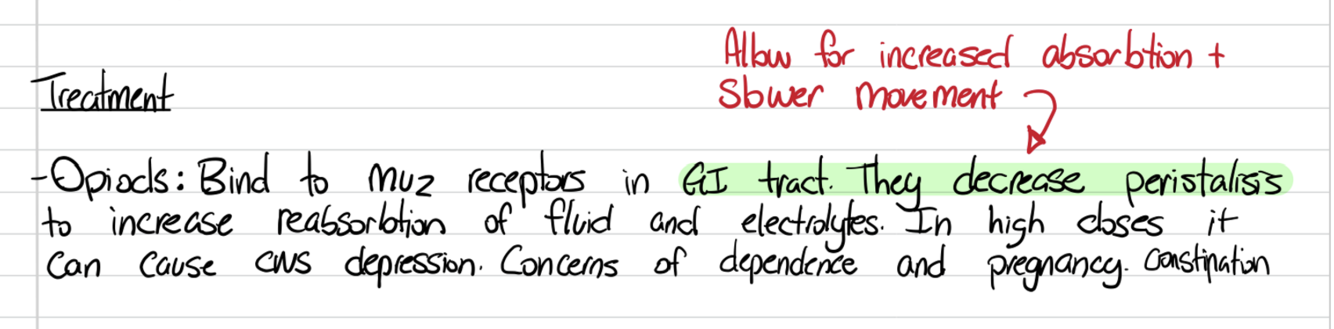 Allow for increased absorbtion +
Slower movement
Treatment
-Opiods: Bind to mu2 receptors in GI tract. They decrease peristalisis
to increase reabsorbtion of fluid and electrolytes. In high doses it
can cause CNS depression. Concerns of dependence and pregnancy. Constipation